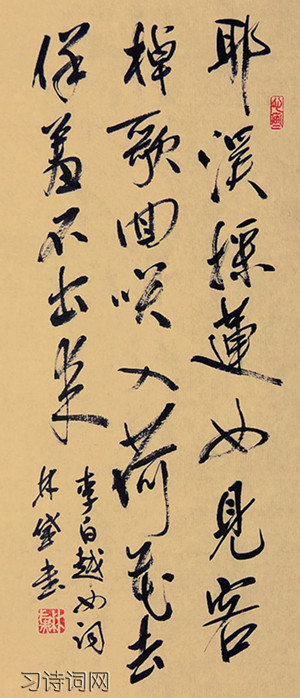 耶溪採蓮女見客
棹歌回咲入荷花去
佯羞不出来
李白越女詞
林書
习诗词网